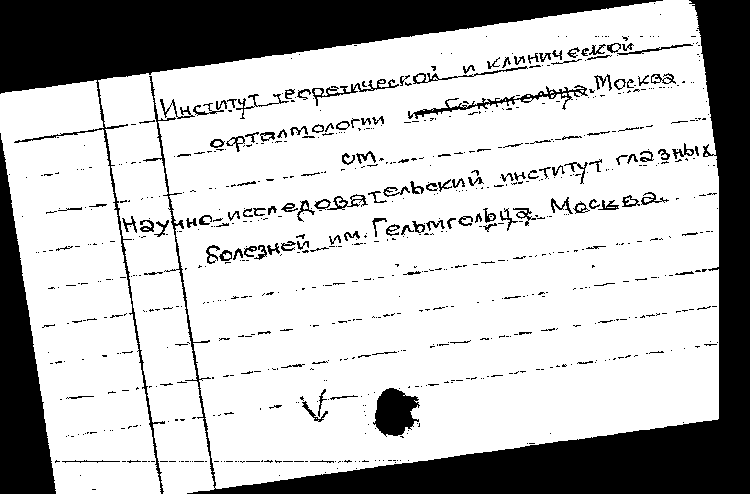 Институт теоретической и клинической
офталмологии им. Гельмгольца. Москва
см.
Научно-исследовательский институт глазных
болезней им. Гельмгольца. Москва.